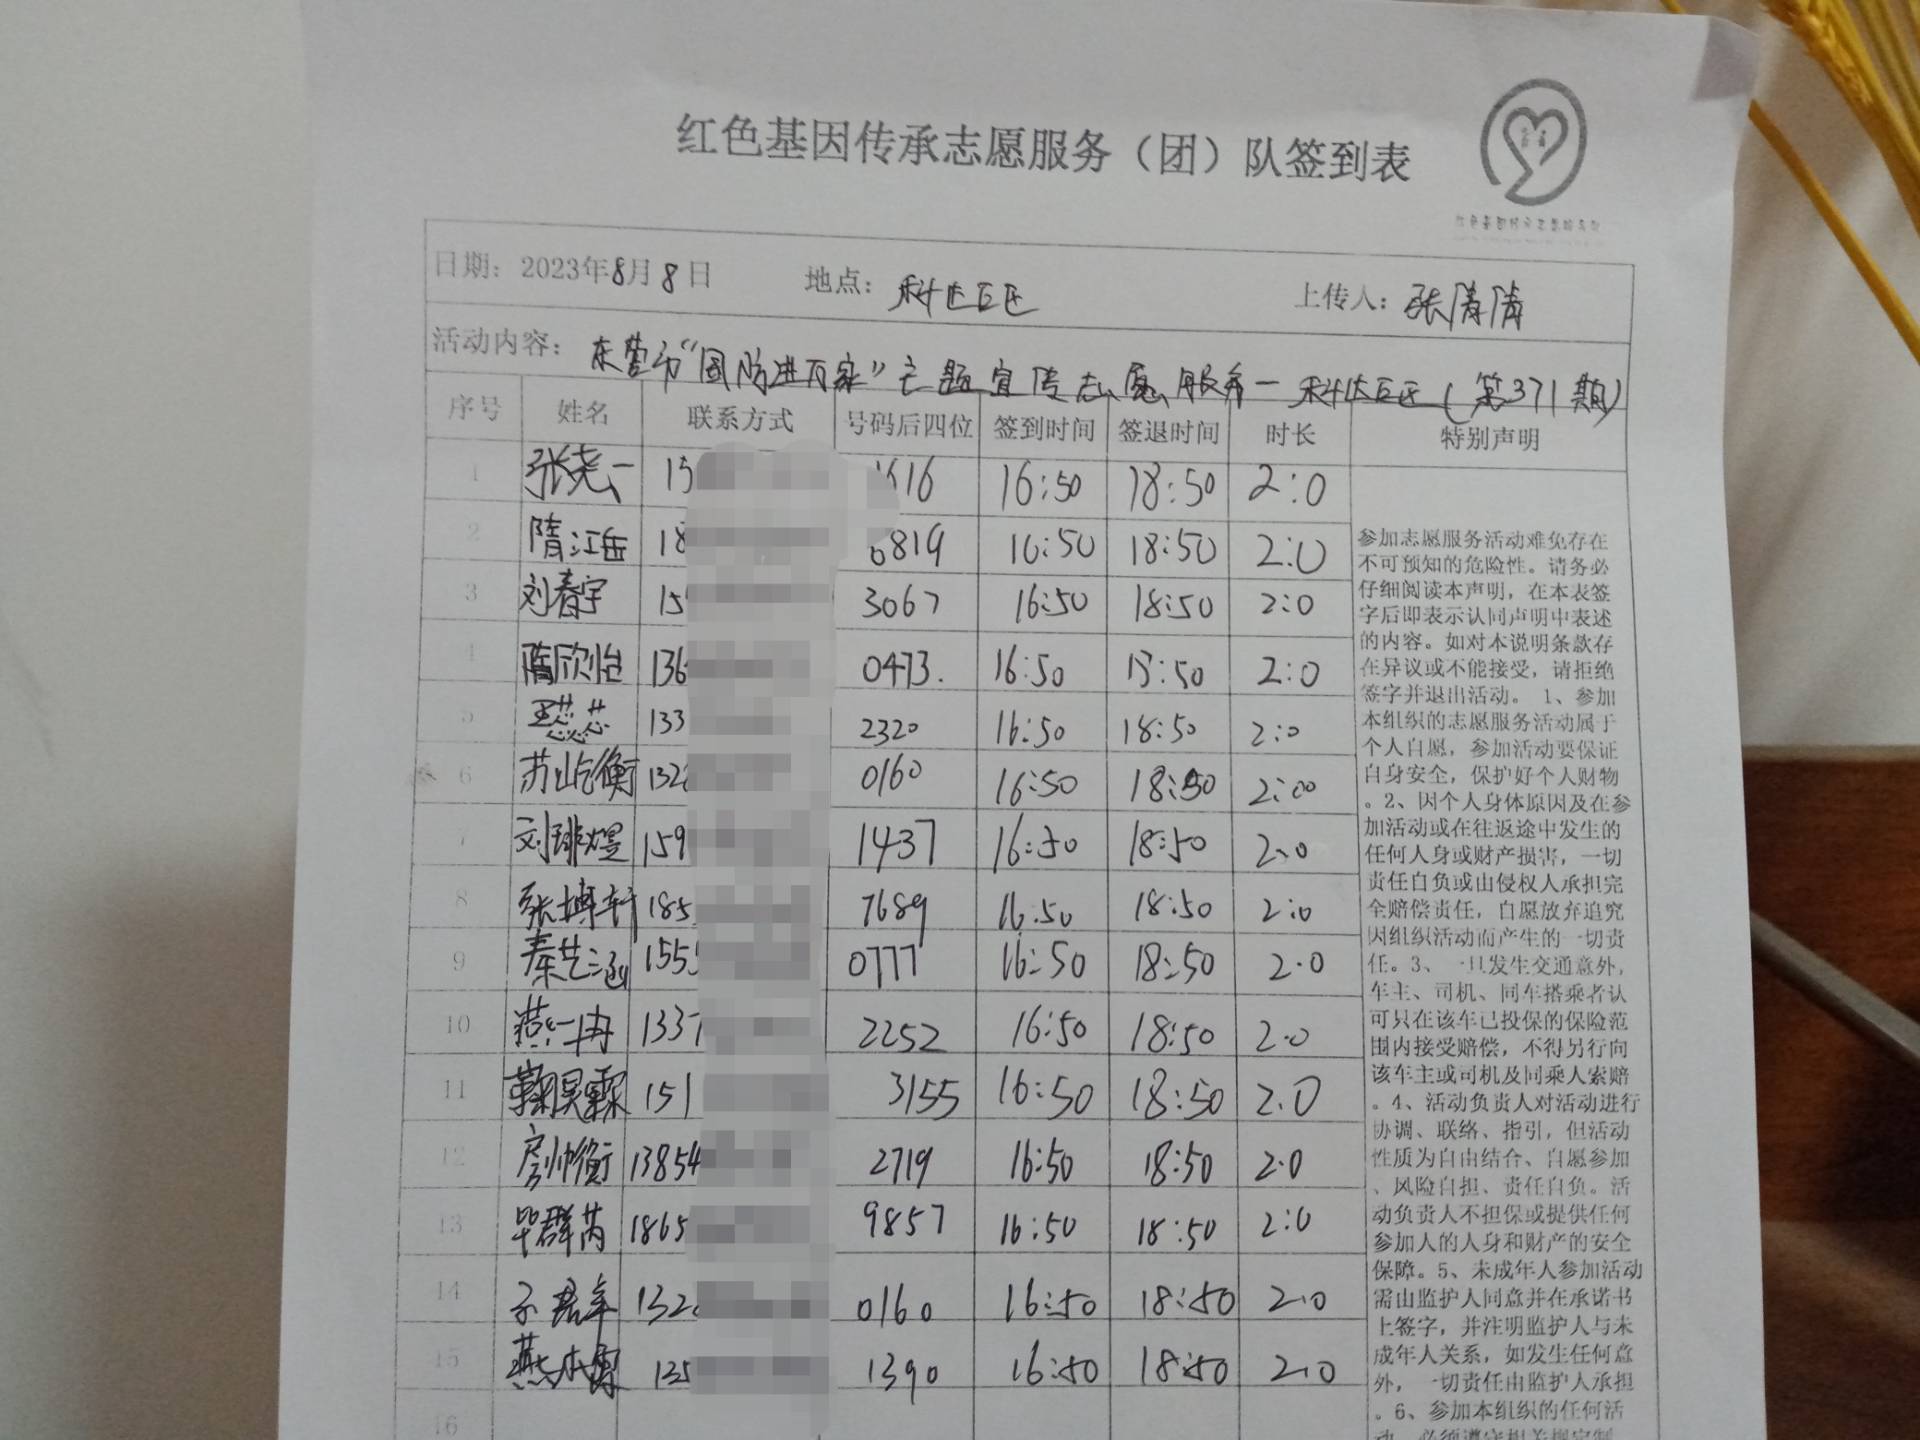 红色基因传承志愿服务（团）队签到表
日期：2023年8月8日 地点：科达巨匠 上传人：张清清
活动内容：东营市“国防进万家”主题宣传志愿服务—科达巨匠（第371期）
序号 姓名 联系方式 号码后四位 签到时间 签退时间 时长 特别声明
1 张尧一 15 616 16:50 18:50 2:0
2 隋江岳 18 0819 16:50 18:50 2:0
3 刘春宇 15 3067 16:50 18:50 2:0
4 隋欣怡 136 0473. 16:50 18:50 2:0
5 王蕊蕊 133 2320 16:50 18:50 2:0
6 苏屹衡 132 0160 16:50 18:50 2:00
7 刘琲煜 159 1437 16:50 18:50 2.0
8 张博轩 185 7689 16:50 18:50 2:0
9 秦艺涵 155 0777 16:50 18:50 2.0
10 燕一冉 1337 2252 16:50 18:50 2.0
11 鞠昊霖 151 3155 16:50 18:50 2.0
12 房帅衡 13854 2719 16:50 18:50 2.0
13 毕群芮 1865 9857 16:50 18:50 2:0
14 132 0160 16:50 18:50 2.0
15 燕 135 1390 16:50 18:50 2.0
16
参加志愿服务活动难免存在
不可预知的危险性。请务必
仔细阅读本声明，在本表签
字后即表示认同声明中表述
的内容。如对本说明条款存
在异议或不能接受，请拒绝
签字并退出活动。 1、参加
本组织的志愿服务活动属于
个人自愿，参加活动要保证
自身安全，保护好个人财物
。2、因个人身体原因及在参
加活动或在往返途中发生的
任何人身或财产损害，一切
责任自负或由侵权人承担完
全赔偿责任，自愿放弃追究
因组织活动而产生的一切责
任。3、一旦发生交通意外，
车主、司机、同车搭乘者认
可只在该车已投保的保险范
围内接受赔偿，不得另行向
该车主或司机及同乘人索赔
。4、活动负责人对活动进行
协调、联络、指引，但活动
性质为自由结合、自愿参加
、风险自担、责任自负。活
动负责人不担保或提供任何
参加人的人身和财产的安全
保障。5、未成年人参加活动
需由监护人同意并在承诺书
上签字，并注明监护人与未
成年人关系，如发生任何意
外，一切责任由监护人承担
。6、参加本组织的任何活